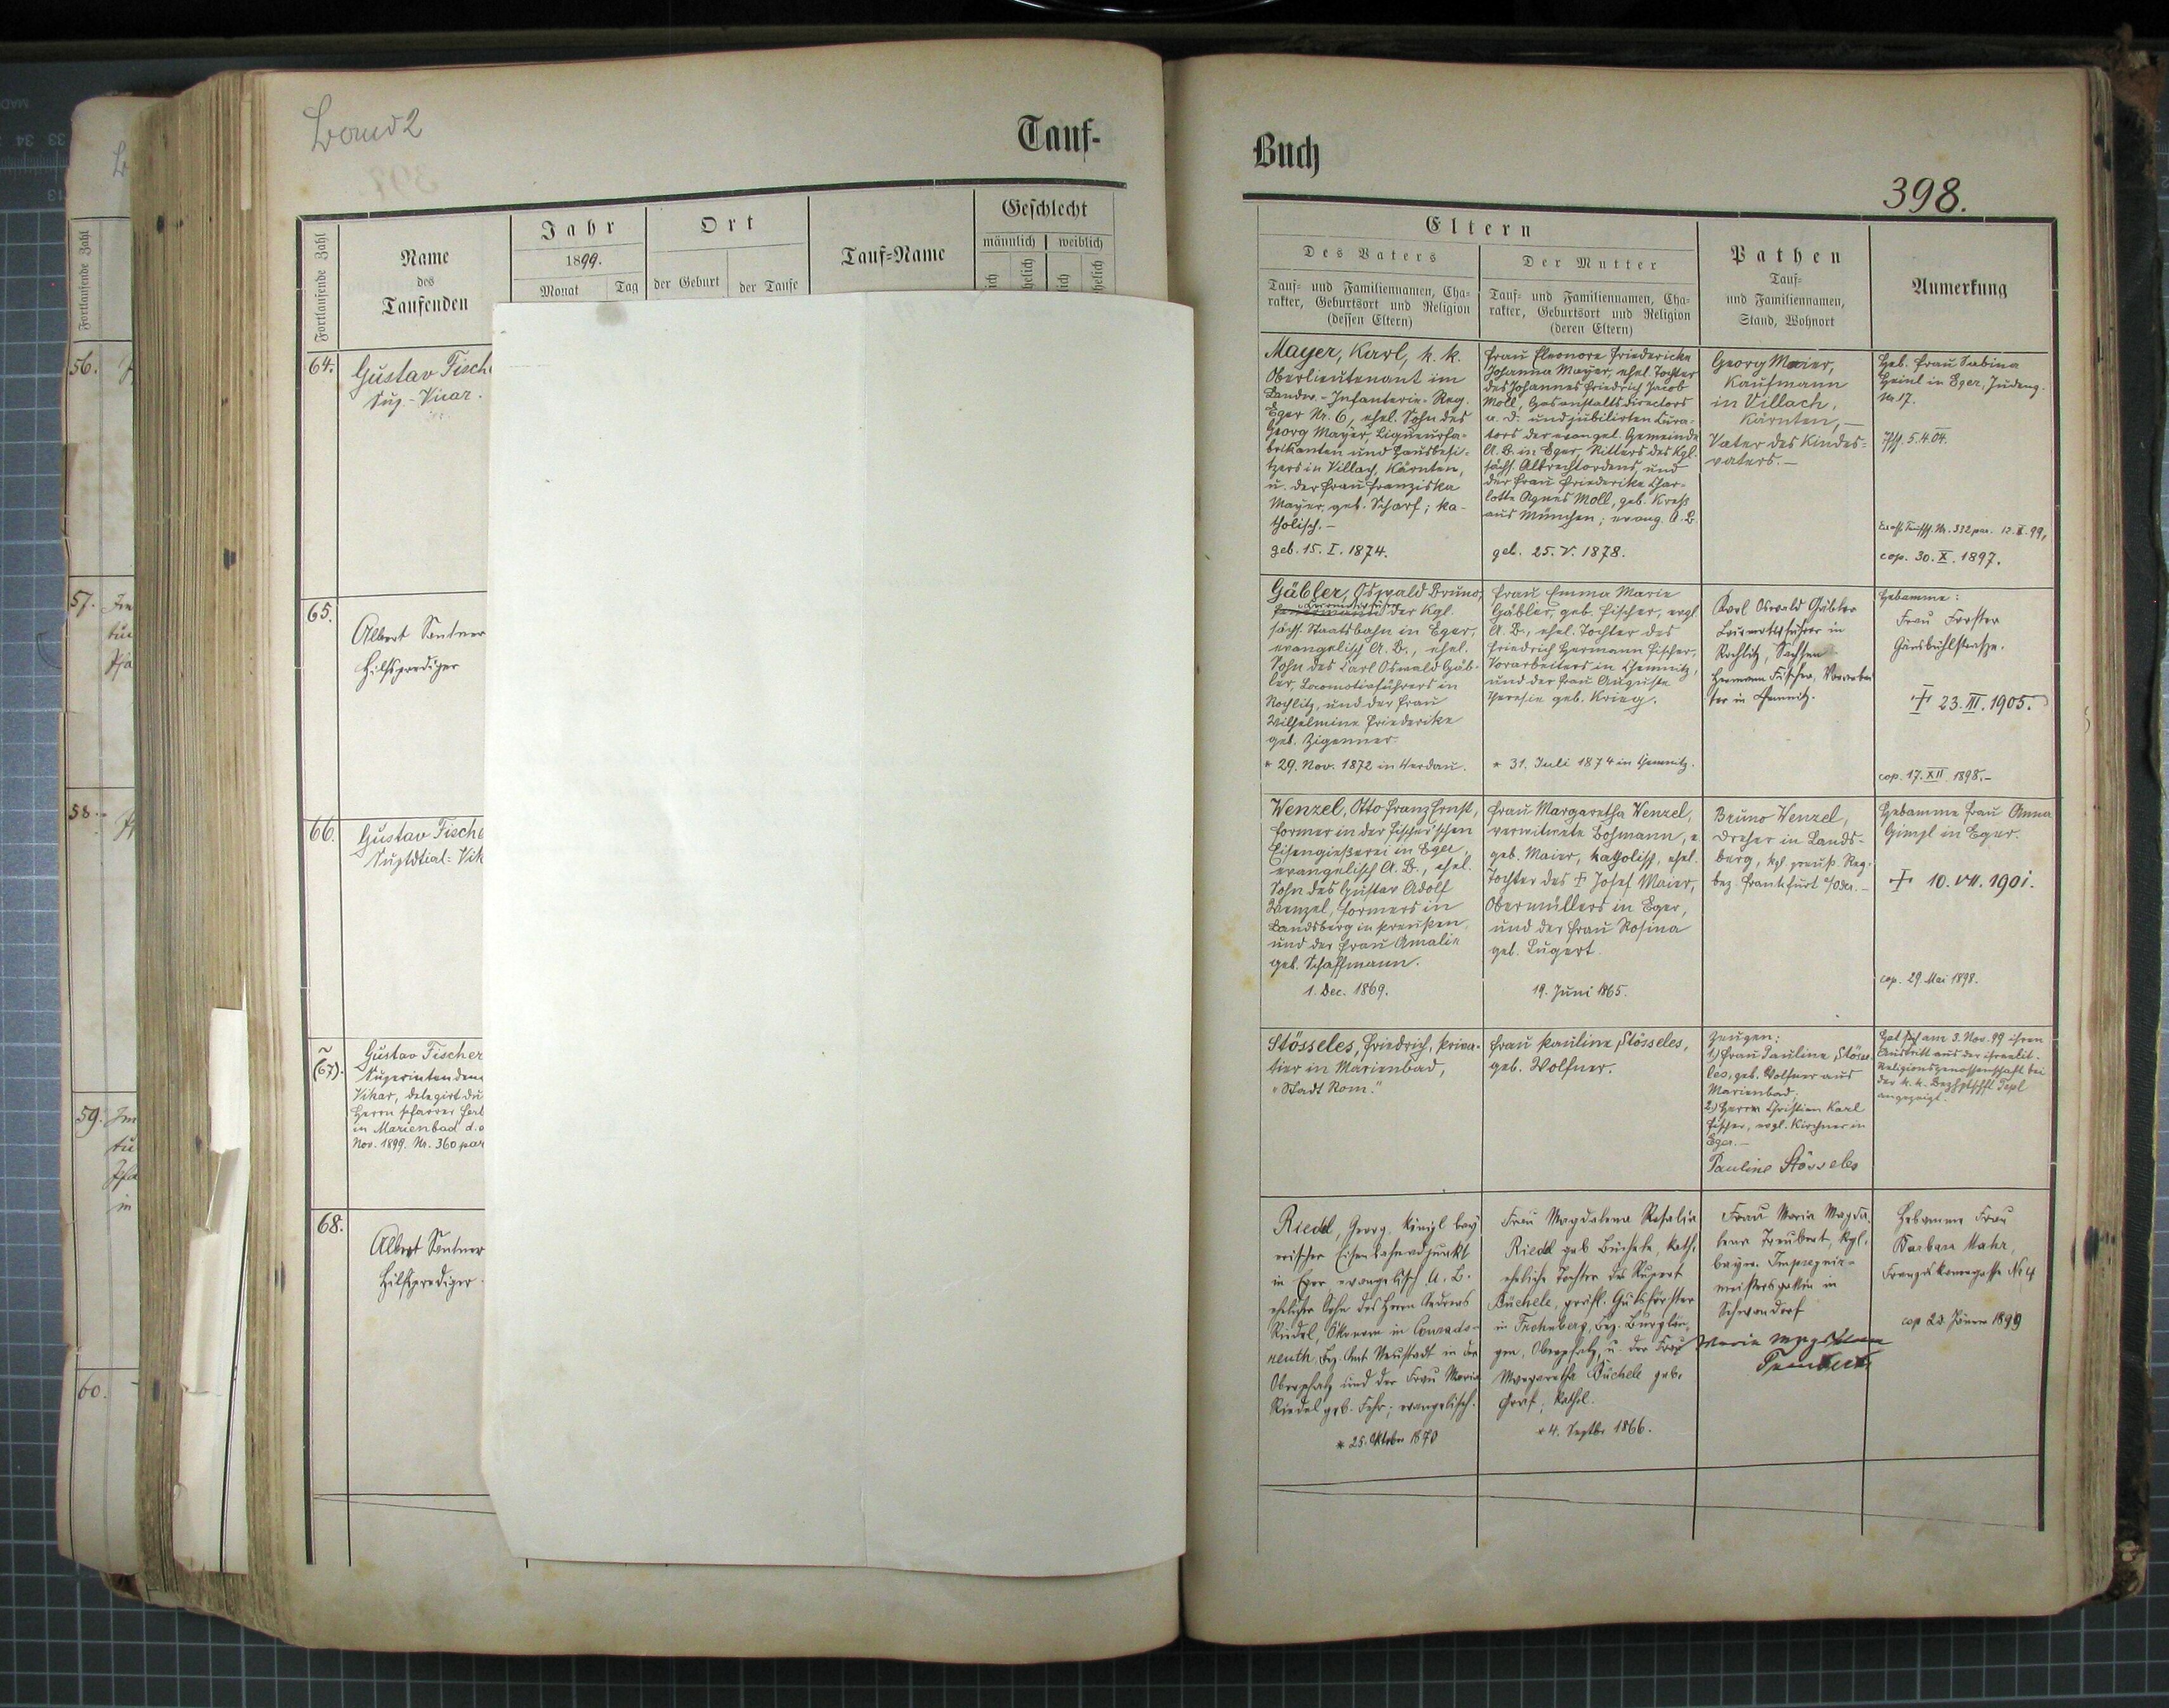 Band 2
Tauf-
Fortlaufende Zahl
Name
des
Taufenden
Jahr
1899.
Monat
Tag
Ort
der Geburt
der Taufe
Tauf-Name
Geschlecht
männlich
weiblich
56.
57.
58.
59.
60.
64.
Gustav Fisch
Sup.-Vicar.
65.
Albert Santner
Hilfsprediger
66.
Gustav Fische
Suptdtial-Vik
(67).
Gustav Fischer
Superintenden
Vikar, delegirt du
Herrn Pfarrer
in Marienbad d.
Nov. 1899. Nr. 360
68.
Albert Santner
Hilfsprediger
Buch
398.
Eltern
Des Vaters
Tauf- und Familiennamen, Cha-
rakter, Geburtsort und Religion
(dessen Eltern)
Der Mutter
Tauf- und Familiennamen, Cha-
rakter, Geburtsort und Religion
(deren Eltern)
Pathen
Tauf-
und Familiennamen,
Stand, Wohnort
Anmerkung
Mayer, Karl, k. k.
Oberlieutenant im
Landw.-Infanterie-Reg.
Eger Nr. 6, ehel. Sohn des
Georg Mayer, Liqueurfa-
brikanten und Hausbesi-
tzers in Villach, Kärnten,
u. der Frau Franziska
Mayer, geb. Scharf; ka-
tholisch.-
geb. 15. I. 1874.
Frau Eleonore Friedericke
Johanna Mayer, ehel. Tochter
des Johannes Friedrich Jacob
Moll, Gasanstaltsdirectors
a. D. und jubilirten Cura-
tors der evangel. Gemeinde
A. B. in Eger, Ritters des Kgl.
sächs. Albrechtordens, und
der Frau Friederike Char-
lotte Agnes Moll, geb. Kreß
aus München; evang. A. B.
geb. 25. V. 1878.
Georg Maier,
Kaufmann
in Villach,
Kärnten,-
Vater des Kindes-
vaters.-
Heb. Frau Sabina
Heinl in Eger, Judeng.
Nr 17.
5.4.04.
cop. 30. X. 1897.
Gäbler, Oswald Bruno,
Locomotivführer
der Kgl.
sächs. Staatsbahn in Eger,
evangelisch A. B., ehel.
Sohn des Carl Oswald Gäb-
ler, Locomotivführers in
Rochlitz, und der Frau
Wilhelmine Friederike
geb. Zigenner.
* 29. Nov. 1872 in Werdau.
Frau Emma Marie
Gäbler, geb. Fischer, evgl.
A. B., ehel. Tochter des
Friedrich Hermann Fischer,
Vorarbeiters in Chemnitz,
und der Frau Auguste
Theresie geb. Krieg.
* 31. Juli 1874 in Chemnitz.
Karl Oswald Gäbler
Locomotivführer in
Rochlitz, Sachsen
Hermann Fischer, Vorarbei
ter in Chemnitz.
Hebamme:
Frau Forster
Gänsbühlstrasse.
✝ 23. III. 1905.
cop. 17. XII 1898.-
Wenzel, Otto Franz Ernst,
Former in der Fischer'schen
Eisengießerei in Eger,
evangelisch A. B., ehel.
Sohn des Gustav Adolf
Wenzel, Formers in
Landsberg in Preußen
und der Frau Amalie
geb. Schaffmann.
1. Dec. 1869.
Frau Margaretha Wenzel,
verwitwete Lohmann,
geb. Maier, katholisch, ehel.
Tochter des ✝ Josef Maier,
Obermüllers in Eger,
und der Frau Rosina
geb. Lugert.
19. Juni 1865.
Bruno Wenzel,
Dreher in Lands-
berg, kgl. preuß. Reg.
bez. Frankfurt a/Oder.-
Hebamme Frau Anna
Gimpl in Eger.
✝ 10. VII. 1901.
cop. 29. Mai 1898.
Stösseles, Friedrich, Priva-
tier in Marienbad,
"Stadt Rom."
Frau Pauline Stösseles,
geb. Wolfner.
Zeugen:
1.) Frau Pauline Stösse-
les, geb. Wolfner aus
Marienbad;
2.) Herrn Christian Karl
Fischer, evgl. Kirchner in
Eger.-
Pauline Stösseles
Hat sich am 3. Nov. 99 ihren
Austritt aus der israelit.
Religionsgenossenschaft bei
der k. k. Bezhptschft Tepl
angezeigt.
Riedel, Georg, königl bay
erischer Eisenbahnadjunkt
in Eger evangelisch A. B.
ehelicher Sohn des Herrn Andreas
Riedel, Ökonom in Conrads-
reuth, Bez. Amt Neustadt in der
Oberpfalz und der Frau Maria
Riedel geb. Fehr; evangelisch.
* 25. Oktober 1870
Frau Magdalena Rosalia
Riedel geb Büchele, kath.
eheliche Tochter des Rupert
Büchele, gräfl. Gutsförster
in Frohnberg, Bez. Burglän-
gen, Oberpfalz, u. der Frau
Margaretha Büchele geb.
Graf, kathol.
* 4. Septbr 1866.
Frau Maria Magda
lena Teubert, kgl.
bayer. Imprägnir-
meistersgattin in
Schwandorf
Maria Magdalena
Teubert
Hebamme Frau
Barbara Mahr,
Franziskanergasse No 4
cop 23. Jänner 1899